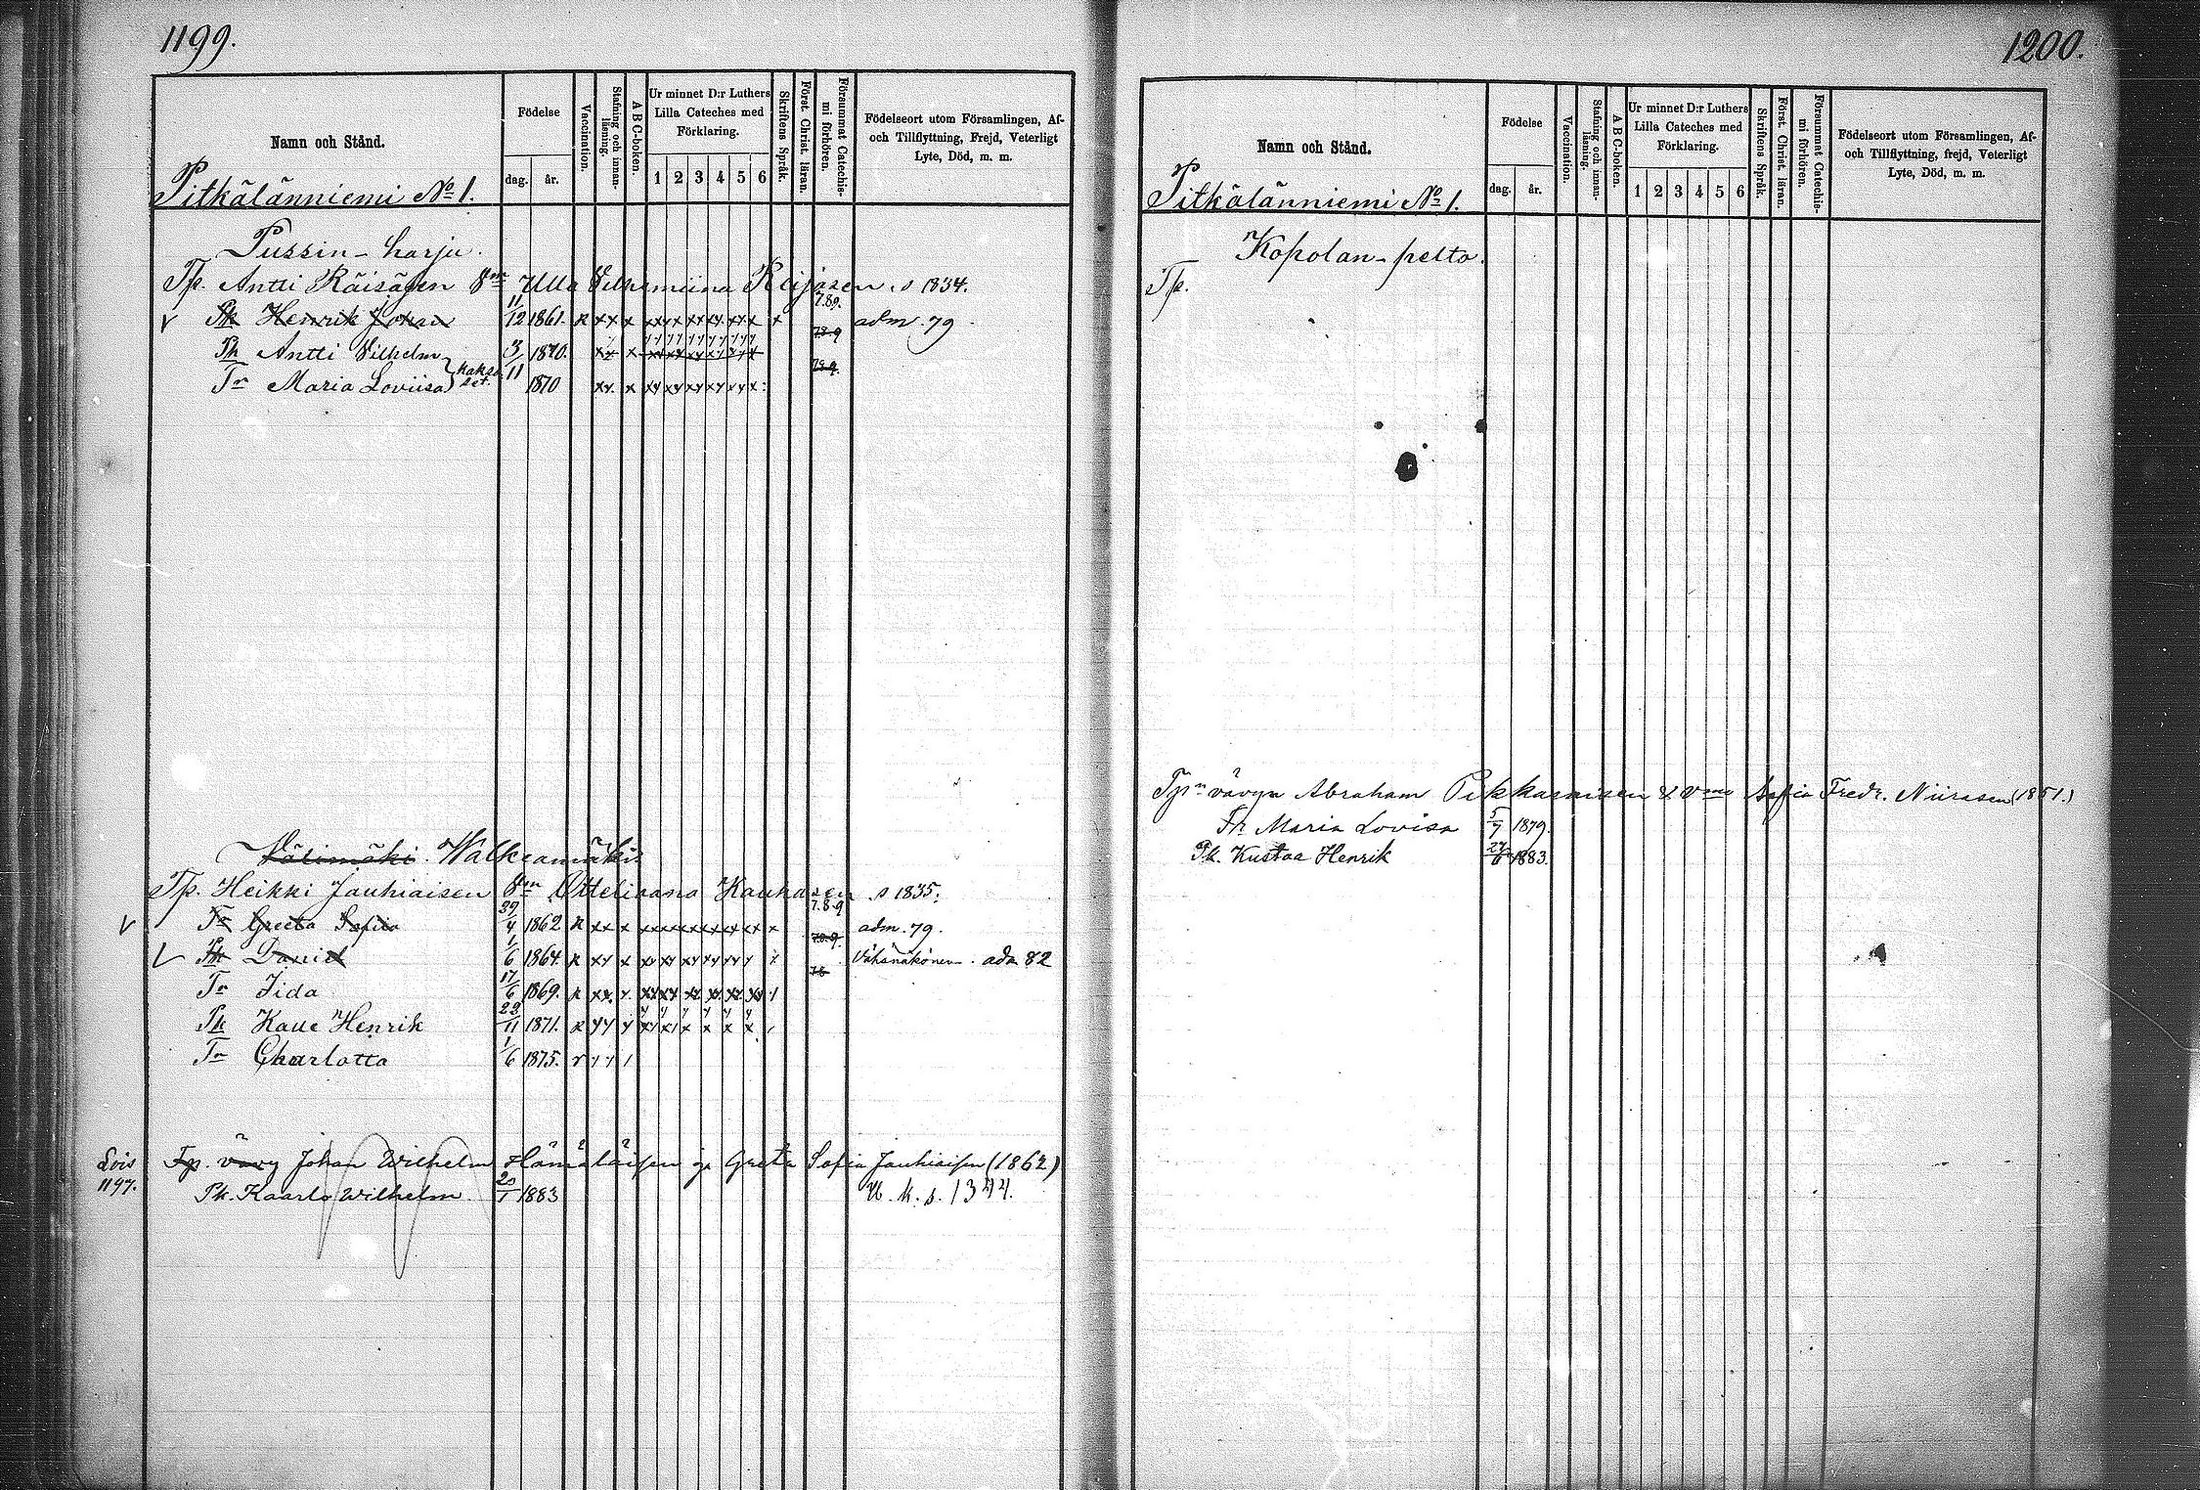 1199.
Namn och Stånd.
Födelse
dag. år.
Vaccination.
Stafning och innan-läsning.
A B C-boken.
Ur minnet D:r Luthers
Lilla Cateches med
Förklaring.
1 2 3 4 5 6
Skriftens Språk.
Först. Christ. läran.
Försummat Catechis-
mi förhören.
Födelseort utom Församlingen, Af-
och Tillflyttning, Frejd, Veterligt
Lyte, Död, m. m.
Pitkälänniemi No 1.
Pussin-harju.
Tp. Antti Räisäsen Vm Ulla Vilhemiina Reijosen s 1834.
Pk Henrik Johan 11/12 1861. R x x x x x x x x x x x x x 7.8.9. adm. 79
Pk Antti Vilhelm 3/11 1870. 7.8.9
Tr Maria Loviisa kakso set. 1870 7.8.9.
Välimäki. Walkeamäki
Tp. Heikki Jauhiaisen Vm Otteliaana Kauhasen s 1835.
Tr Greeta Sofiia 29/4 1862 R x x x x x x x x x x x x x 7.8.9 adm. 79.
Pk Daniel 1/6 1864. R 7.8.9. Vähänäkönen. adm 82
Tr Iida 17/6 1869. R 78
Pk Kalle Henrik 22/11 1871. R
Tr Charlotta 1/6 1875. r
Lois 1197. Tp. vävy Johan Wilhelm Hämäläisen ja Greta Sofia Jauhiaisen (1862)
Pk. Kaarlo Wilhelm 20/1 1883 U. k. s. 1344.
1200.
Namn och Stånd.
Födelse
dag. år.
Vaccination.
Stafning och innan-läsning.
A B C-boken.
Ur minnet D:r Luthers
Lilla Cateches med
Förklaring.
1 2 3 4 5 6
Skriftens Språk.
Först. Christ. läran.
Försummat Catechis-
mi förhören.
Födelseort utom Församlingen, Af-
och Tillflyttning, frejd, Veterligt
Lyte, Död, m. m.
Pitkälänniemi No 1.
Kopolan-pelto.
Tp.
Tp:n vävyn Abraham Pekkarnisen & Vmo Sofia Fredr. Niirasen (1851.)
Tr Maria Lovisa 5/7 1879.
Pk. Kustaa Henrik 27/6 1883.